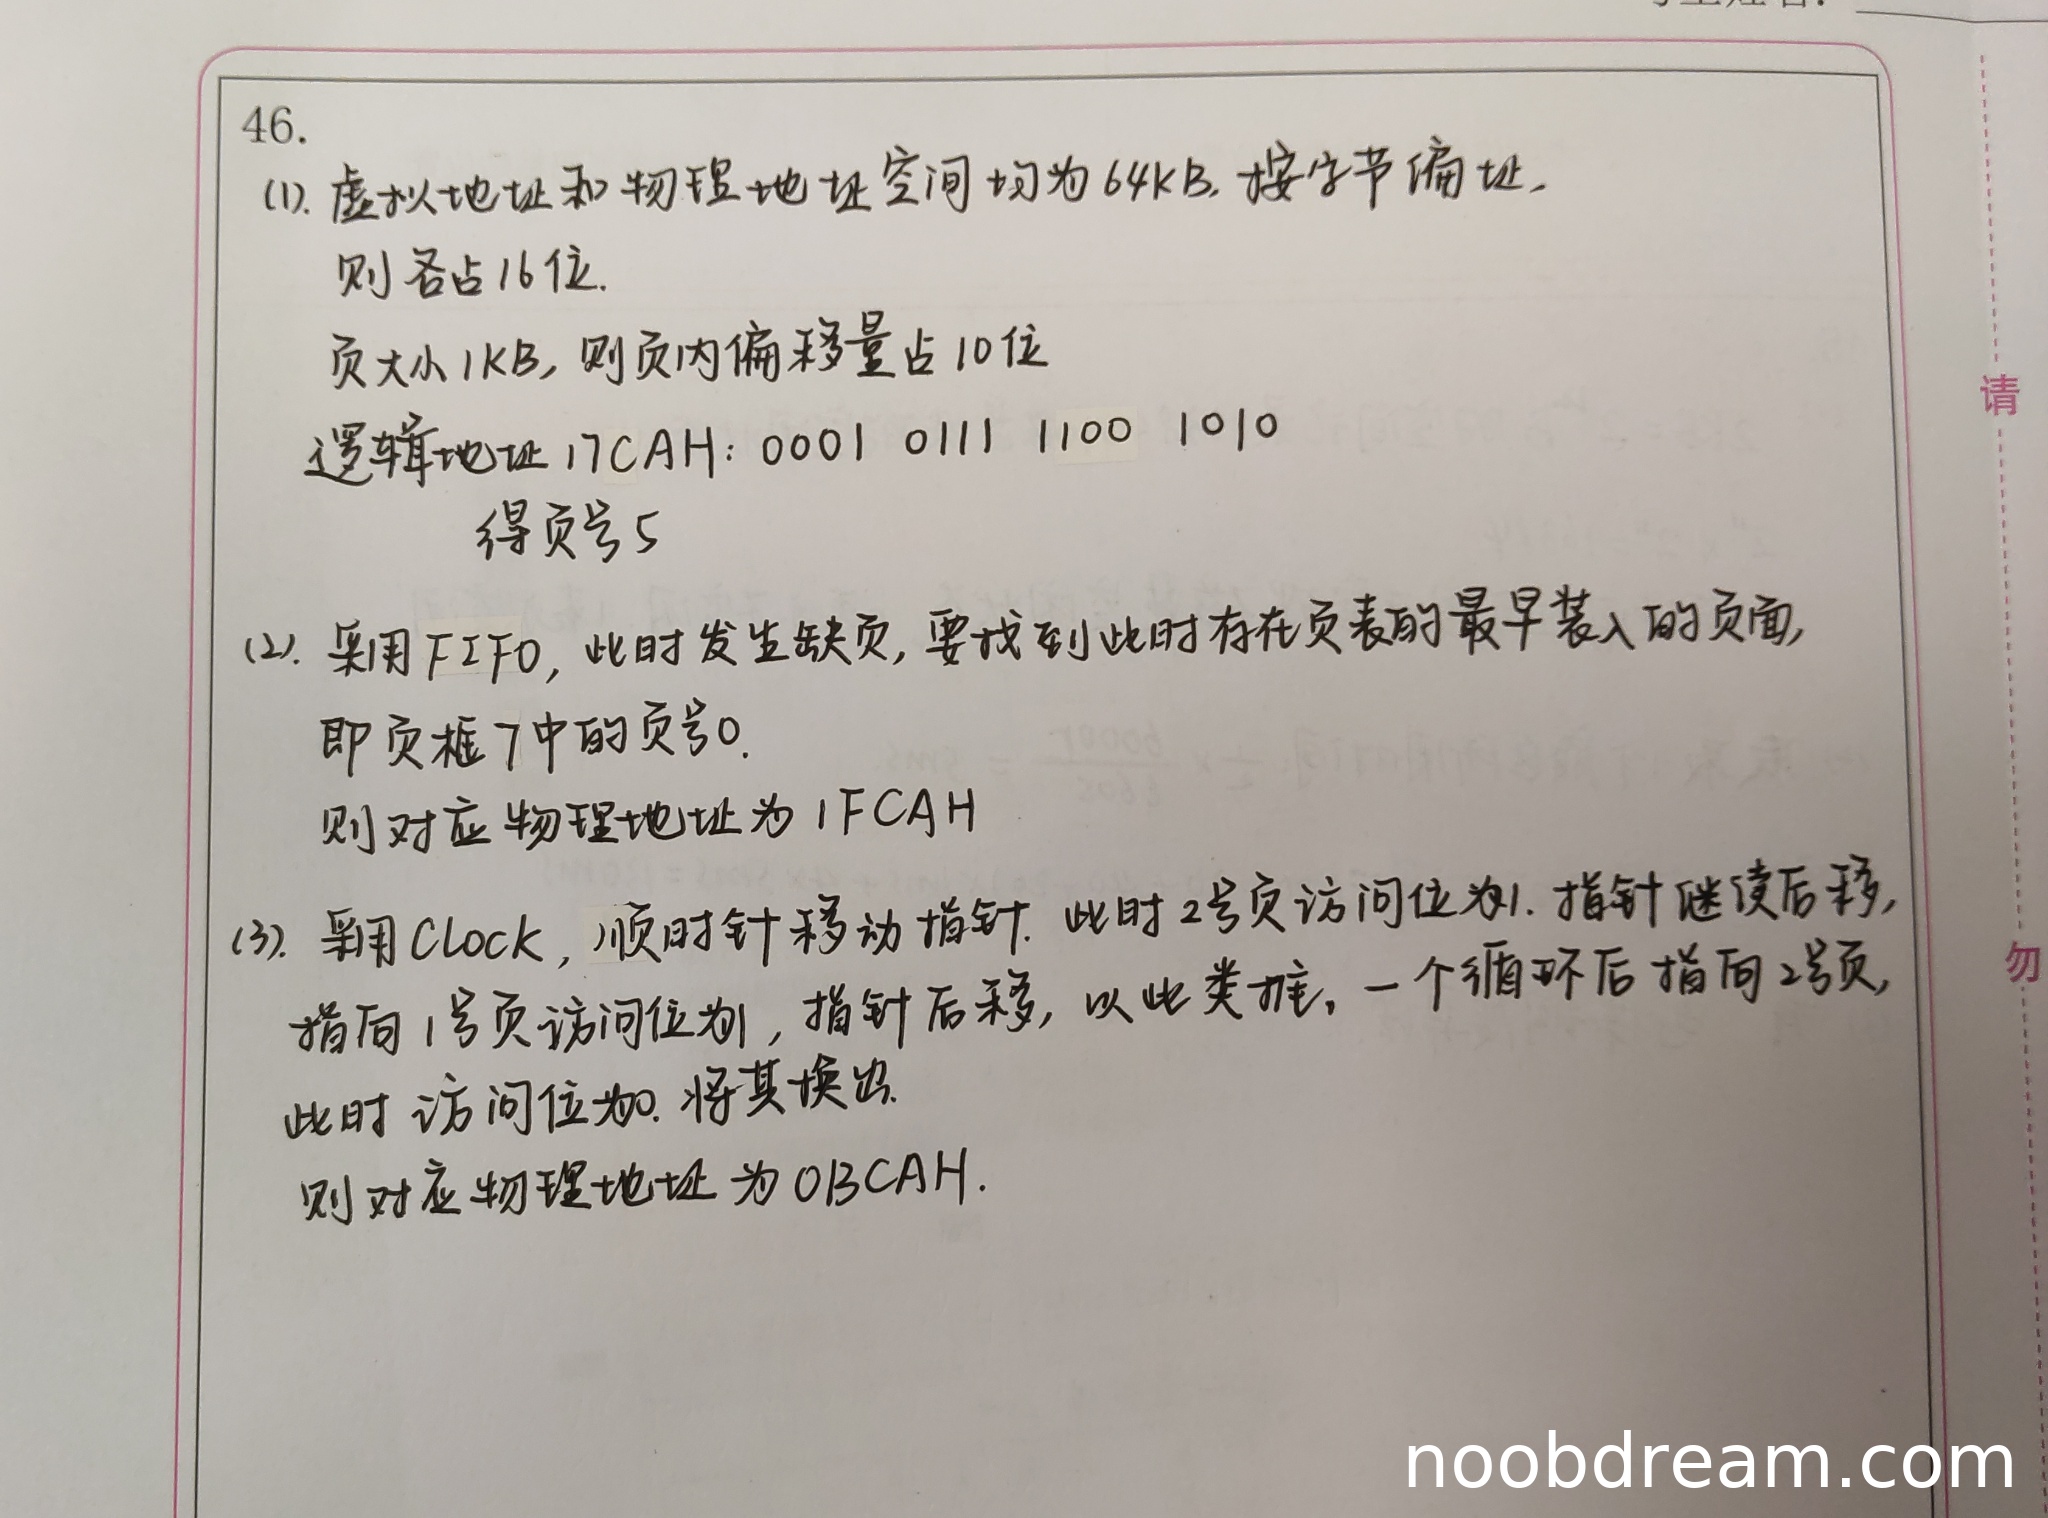 考生姓名:
46.
(1). 虚拟地址和物理地址空间均为64KB, 按字节偏址,
则各占16位.
页大小1KB, 则页内偏移量占10位
逻辑地址17CAH: 0001 0111 1100 1010
得页号5
(2). 采用FIFO, 此时发生缺页, 要找到此时存在页表的最早装入的页面,
即页框7中的页号0.
则对应物理地址为1FCAH
(3). 采用Clock, 顺时针移动指针. 此时2号页访问位为1. 指针继续后移,
指向1号页访问位为1, 指针后移, 以此类推, 一个循环后指向2号页,
此时访问位为0. 将其换出.
则对应物理地址为0BCAH.
请
勿
noobdream.com